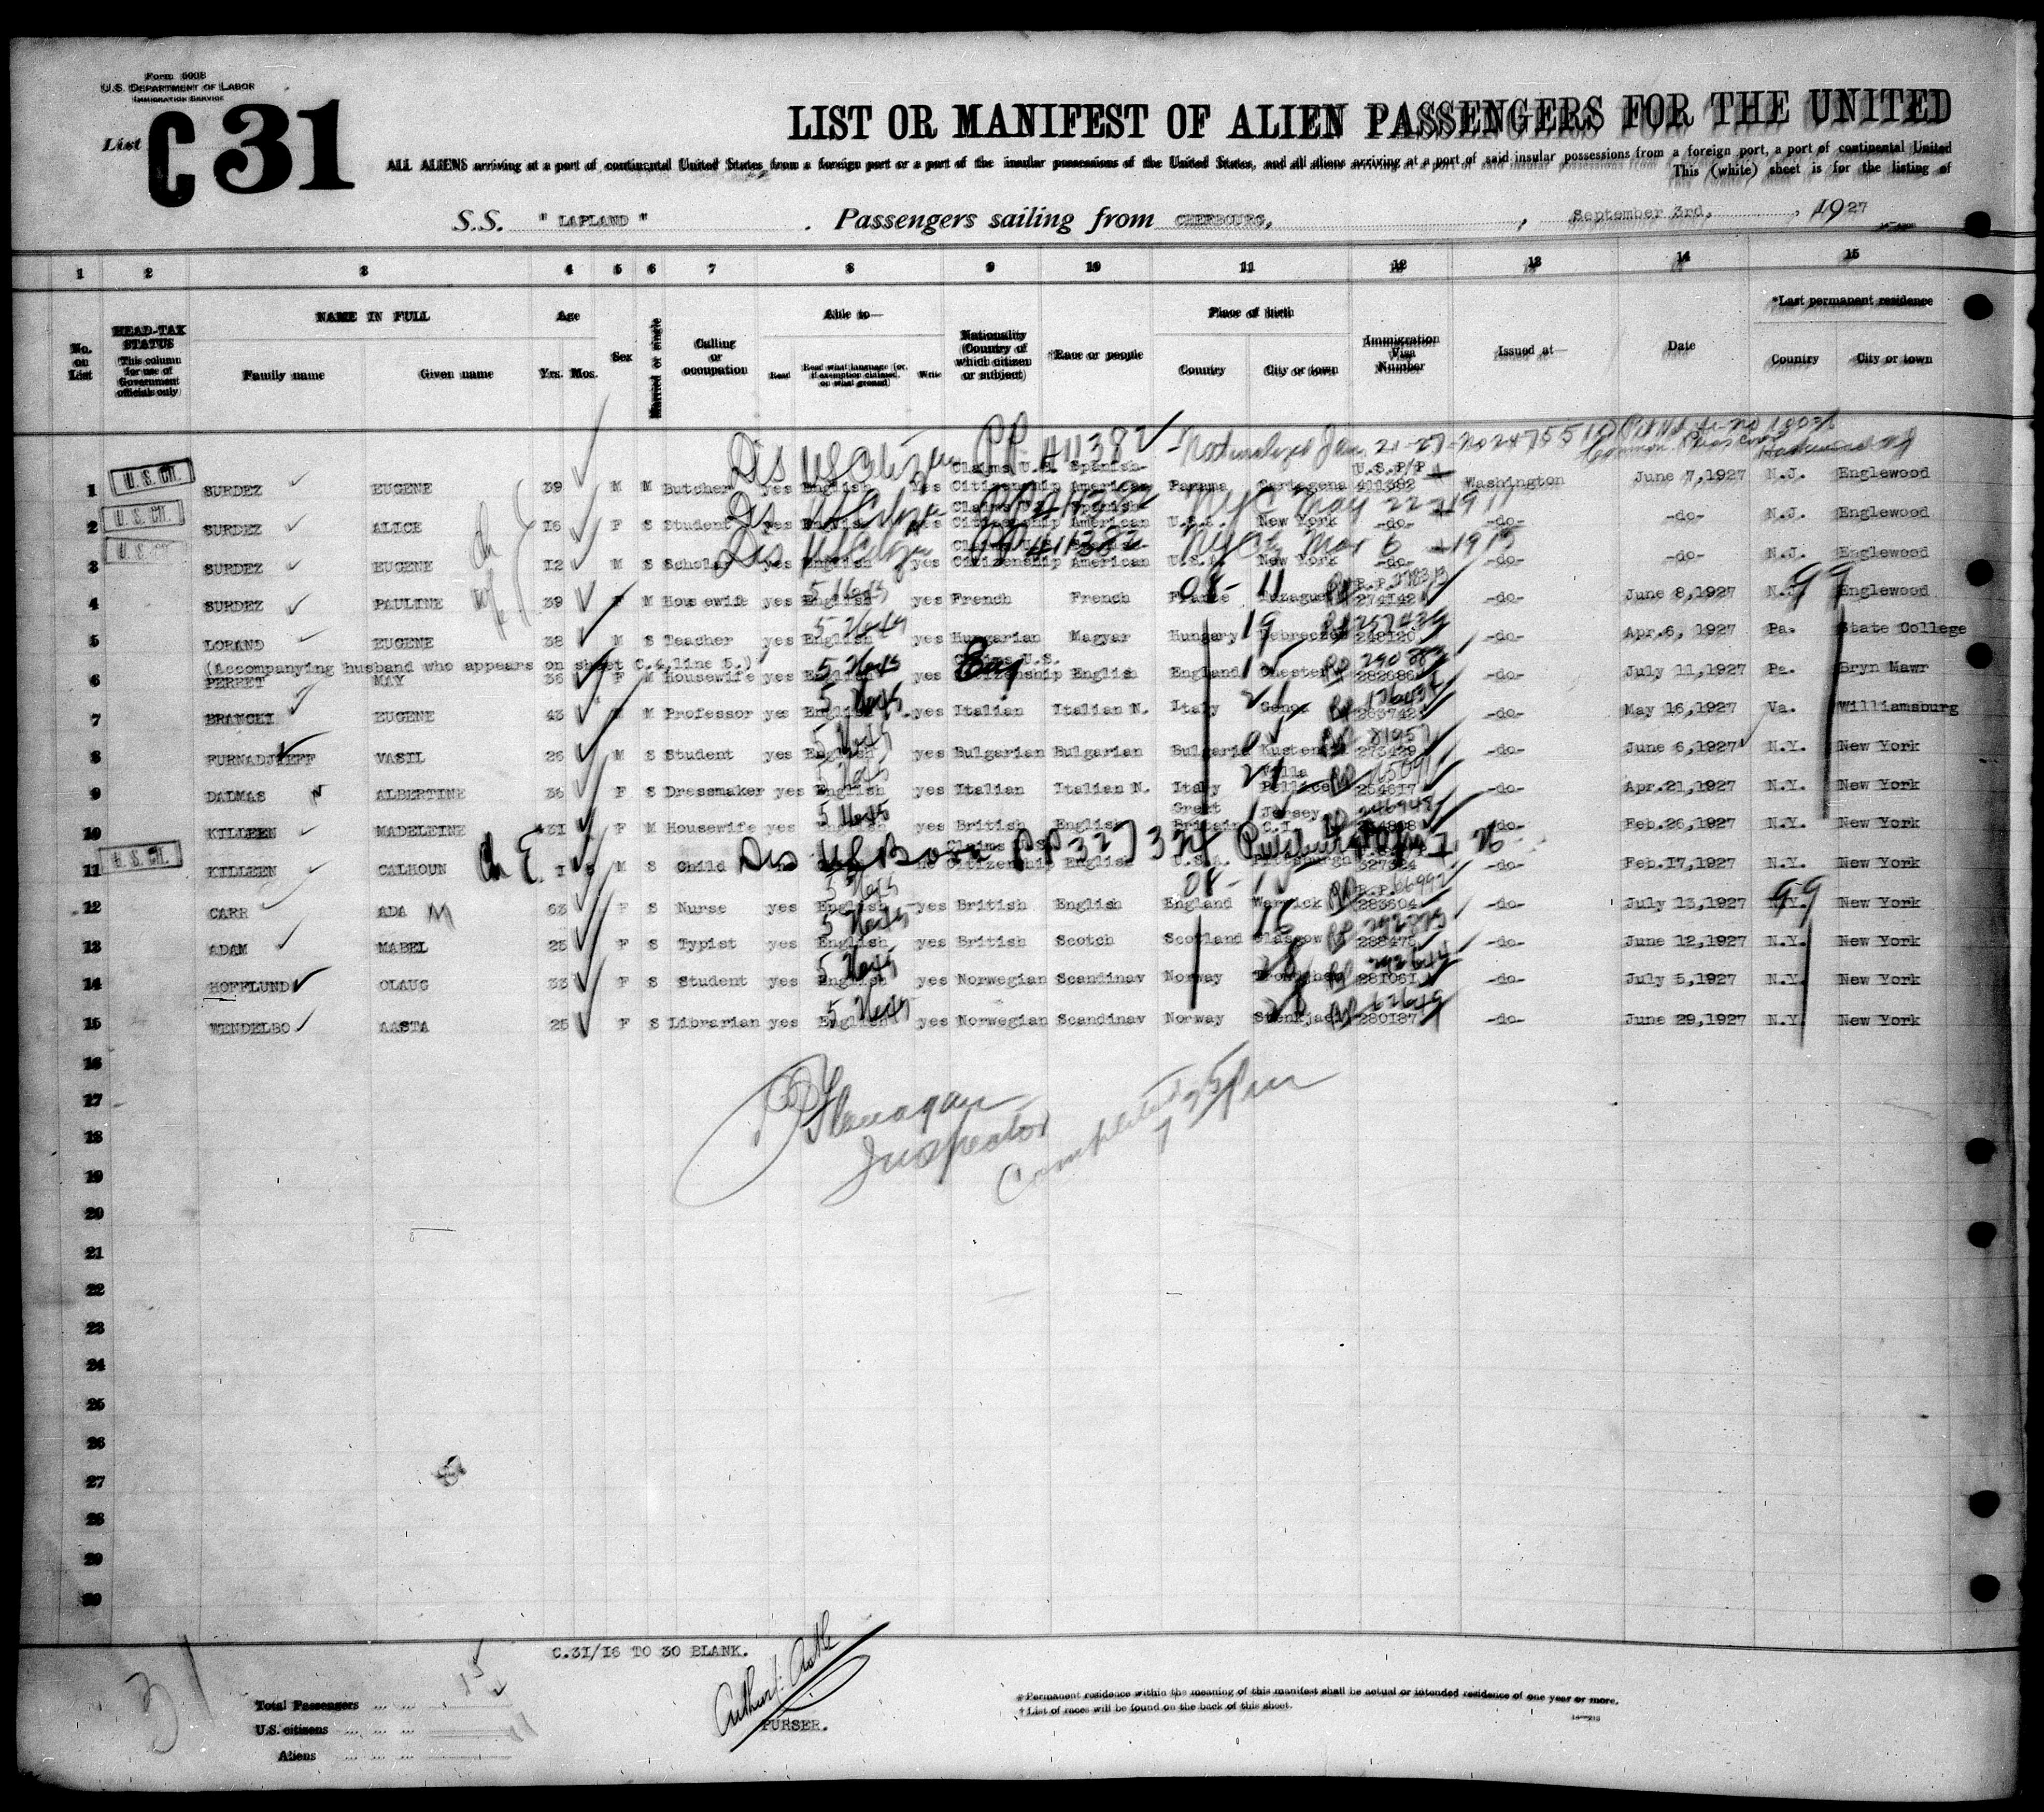 Form 500B
U.S. DEPARTMENT OF LABOR
IMMIGRATION SERVICE
List C 31
LIST OR MANIFEST OF ALIEN PASSENGERS FOR THE UNITED
ALL ALIENS arriving at a port of continental United States from a foreign port or a port of the insular possessions of the United States, and all aliens arriving at a port of said insular possessions from a foreign port, a port of continental United
This (white) sheet is for the listing of
S.S. " LAPLAND " . Passengers sailing from CHERBOURG, , September 3rd, , 1927
1 2 3 4 5 6 7 8 9 10 11 12 13 14 15
No. on List
HEAD-TAX STATUS (This column for use of Government officials only)
NAME IN FULL Family name Given name
Age Yrs. Mos.
Sex
Married or single
Calling or occupation
Able to— Read Read what language (or, if exemption claimed, on what ground) Write
Nationality (Country of which citizen or subject)
*Race or people
Place of birth Country City or town
Immigration Visa Number
Issued at—
Date
*Last permanent residence Country City or town
Dis US Citizen PP 411382 Naturalized Jan 21-27-No 2475510
Claims U.S. Spanish- U.S.P/P
1 U.S. Cit. SURDEZ EUGENE 39 M M Butcher yes English yes Citizenship American Panama Cartagena 411382 Washington June 7,1927 N.J. Englewood
Dis US Citizen PP 411382 NYC May 22-1911
2 U.S. Cit. SURDEZ ALICE 16 F S Student yes English yes Citizenship American U.S.A. New York -do- -do- -do- N.J. Englewood
Dis US Citizen PP 411382 NY City Mar 6 1915
3 U.S. Cit. SURDEZ EUGENE 12 M S Scholar yes English yes Citizenship American U.S.A. New York -do- -do- -do- N.J. Englewood
4 SURDEZ PAULINE 39 F M Housewife yes English yes French French France 274142 -do- June 8,1927 N.J. Englewood
5 LORAND EUGENE 38 M S Teacher yes English yes Hungarian Magyar Hungary Debreczen 248120 -do- Apr.6, 1927 Pa. State College
(Accompanying husband who appears on sheet C.4,line 5.) Claims U.S.
6 PERRET MAY 36 F M Housewife yes English yes Citizenship English England Chester 282686 -do- July 11,1927 Pa. Bryn Mawr
7 BRANCHI EUGENE 43 M M Professor yes English yes Italian Italian N. Italy Genoa 263742 -do- May 16,1927 Va. Williamsburg
8 FURNADJIEFF VASIL 26 M S Student yes English yes Bulgarian Bulgarian Bulgaria 273429 -do- June 6,1927 N.Y. New York
9 DALMAS ALBERTINE 36 F S Dressmaker yes English yes Italian Italian N. Italy Villa Pellice 254617 -do- Apr.21,1927 N.Y. New York
10 KILLEEN MADELEINE 31 F M Housewife yes English yes British English Great Britain Jersey C.I. -do- Feb.26,1927 N.Y. New York
Dis US Born PP 327324 Pittsburgh
11 U.S. Cit. KILLEEN CALHOUN 1 M S Child no no Citizenship English U.S.A. Pittsburgh 327324 -do- Feb.17,1927 N.Y. New York
12 CARR ADA 63 F S Nurse yes English yes British English England Warwick 283604 -do- July 13,1927 N.Y. New York
13 ADAM MABEL 25 F S Typist yes English yes British Scotch Scotland Glasgow -do- June 12,1927 N.Y. New York
14 HOFFLUND OLAUG 33 F S Student yes English yes Norwegian Scandinav Norway 281061 -do- July 5,1927 N.Y. New York
15 WENDELBO AASTA 25 F S Librarian yes English yes Norwegian Scandinav Norway 280187 -do- June 29,1927 N.Y. New York
16
17
18
19
20
21
22
23
24
25
26
27
28
29
30
Flanagan
Inspector
Completed 7 35 pm
C.31/16 TO 30 BLANK.
31
Total Passengers ... ... 15
U.S. citizens ... ...
Aliens ... ... ...
PURSER.
*Permanent residence within the meaning of this manifest shall be actual or intended residence of one year or more.
† List of races will be found on the back of this sheet.